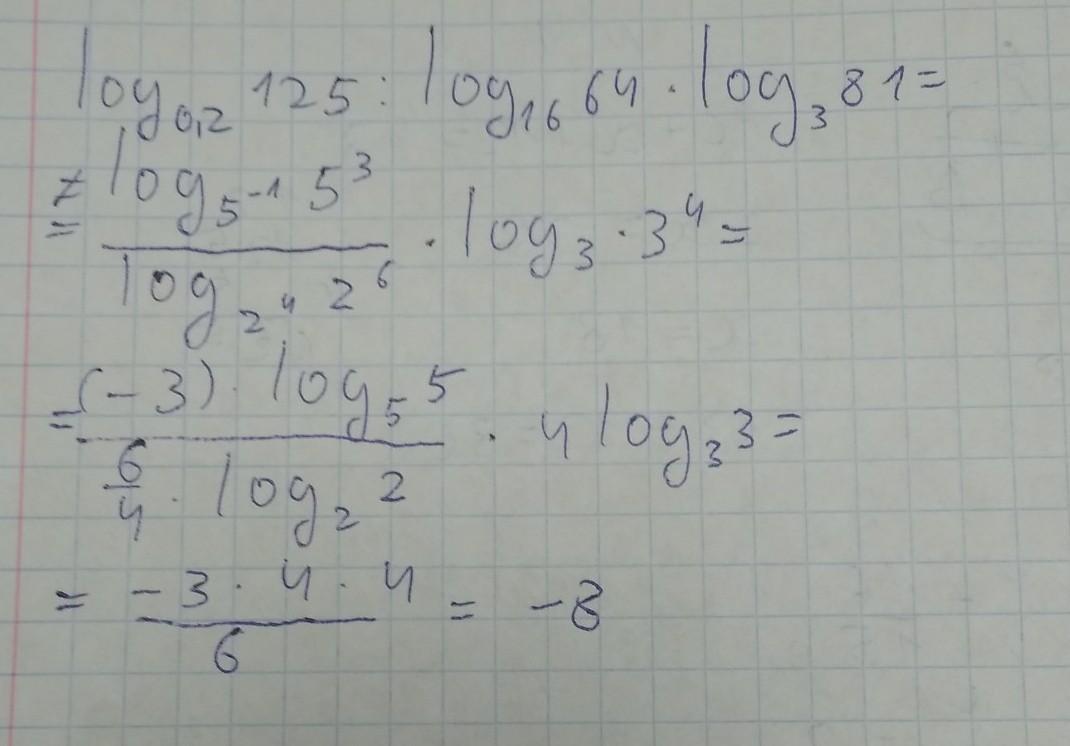 log₀,₂ 125 : log₁₆ 64 · log₃ 81 =
= log₅⁻¹ 5³ / log₂⁴ 2⁶ · log₃ · 3⁴ =
= (-3) · log₅ 5 / 6/4 · log₂ 2 · 4 log₃ 3 =
= -3 · 4 · 4 / 6 = -8